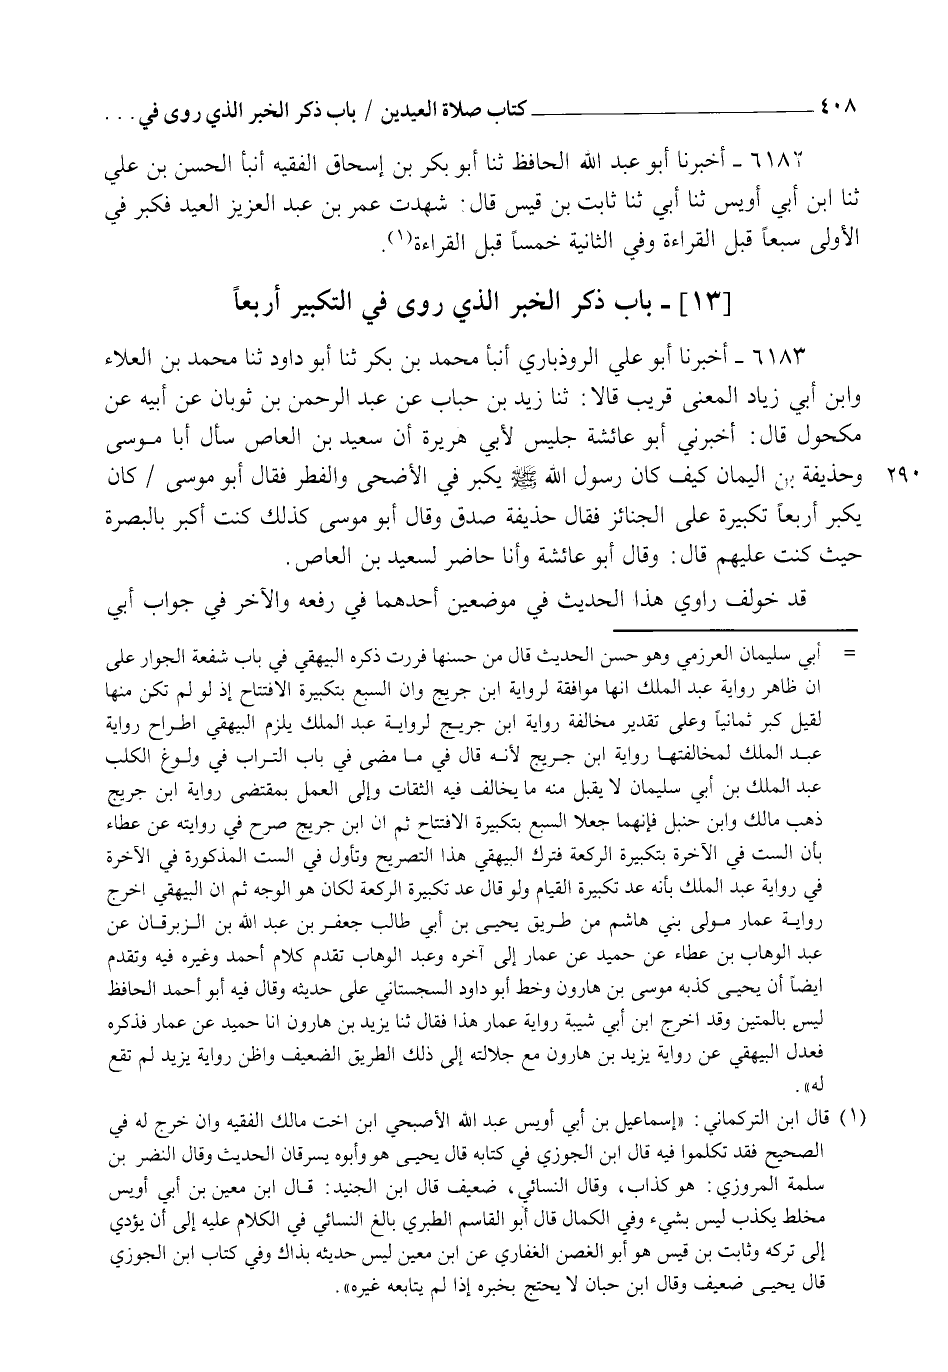 ٤٠٨ ــــــــــــــــ كتاب صلاة العيدين / باب ذكر الخبر الذي روى في . . .
٦١٨٢ ـ أخبرنا أبو عبد الله الحافظ ثنا أبو بكر بن إسحاق الفقيه أنبأ الحسن بن علي
ثنا ابن أبي أويس ثنا أبي ثنا ثابت بن قيس قال: شهدت عمر بن عبد العزيز العيد فكبر في
الأولى سبعاً قبل القراءة وفي الثانية خمساً قبل القراءة(١).
[١٣] ـ باب ذكر الخبر الذي روى في التكبير أربعاً
٦١٨٣ ـ أخبرنا أبو علي الروذباري أنبأ محمد بن بكر ثنا أبو داود ثنا محمد بن العلاء
وابن أبي زياد المعنى قريب قالا: ثنا زيد بن حباب عن عبد الرحمن بن ثوبان عن أبيه عن
مكحول قال: أخبرني أبو عائشة جليس لأبي هريرة أن سعيد بن العاص سأل أبا موسى
وحذيفة بن اليمان كيف كان رسول الله ﷺ يكبر في الأضحى والفطر فقال أبو موسى / كان ٢٩٠
يكبر أربعاً تكبيرة على الجنائز فقال حذيفة صدق وقال أبو موسى كذلك كنت أكبر بالبصرة
حيث كنت عليهم قال: وقال أبو عائشة وأنا حاضر لسعيد بن العاص.
قد خولف راوي هذا الحديث في موضعين أحدهما في رفعه والآخر في جواب أبي
= أبي سليمان العرزمي وهو حسن الحديث قال من حسنها فررت ذكره البيهقي في باب شفعة الجوار على
ان ظاهر رواية عبد الملك انها موافقة لرواية ابن جريج وان السبع بتكبيرة الافتتاح إذ لو لم تكن منها
لقيل كبر ثمانياً وعلى تقدير مخالفة رواية ابن جريج لرواية عبد الملك يلزم البيهقي اطراح رواية
عبد الملك لمخالفتها رواية ابن جريج لأنه قال في ما مضى في باب التراب في ولوغ الكلب
عبد الملك بن أبي سليمان لا يقبل منه ما يخالف فيه الثقات وإلى العمل بمقتضى رواية ابن جريج
ذهب مالك وابن حنبل فإنهما جعلا السبع بتكبيرة الافتتاح ثم ان ابن جريج صرح في روايته عن عطاء
بأن الست في الآخرة بتكبيرة الركعة فترك البيهقي هذا التصريح وتأول في الست المذكورة في الآخرة
في رواية عبد الملك بأنه عد تكبيرة القيام ولو قال عد تكبيرة الركعة لكان هو الوجه ثم ان البيهقي اخرج
رواية عمار مولى بني هاشم من طريق يحيى بن أبي طالب جعفر بن عبد الله بن الزبرقان عن
عبد الوهاب بن عطاء عن حميد عن عمار إلى آخره وعبد الوهاب تقدم كلام أحمد وغيره فيه وتقدم
ايضاً أن يحيى كذبه موسى بن هارون وخط أبو داود السجستاني على حديثه وقال فيه أبو أحمد الحافظ
ليس بالمتين وقد اخرج ابن أبي شيبة رواية عمار هذا فقال ثنا يزيد بن هارون انا حميد عن عمار فذكره
فعدل البيهقي عن رواية يزيد بن هارون مع جلالته إلى ذلك الطريق الضعيف واظن رواية يزيد لم تقع
له».
(١) قال ابن التركماني: «إسماعيل بن أبي أويس عبد الله الأصبحي ابن اخت مالك الفقيه وان خرج له في
الصحيح فقد تكلموا فيه قال ابن الجوزي في كتابه قال يحيى هو وأبوه يسرقان الحديث وقال النضر بن
سلمة المروزي: هو كذاب، وقال النسائي، ضعيف قال ابن الجنيد: قال ابن معين بن أبي أويس
مخلط يكذب ليس بشيء وفي الكمال قال أبو القاسم الطبري بالغ النسائي في الكلام عليه إلى أن يؤدي
إلى تركه وثابت بن قيس هو أبو الغصن الغفاري عن ابن معين ليس حديثه بذاك وفي كتاب ابن الجوزي
قال يحيى ضعيف وقال ابن حبان لا يحتج بخبره إذا لم يتابعه غيره».